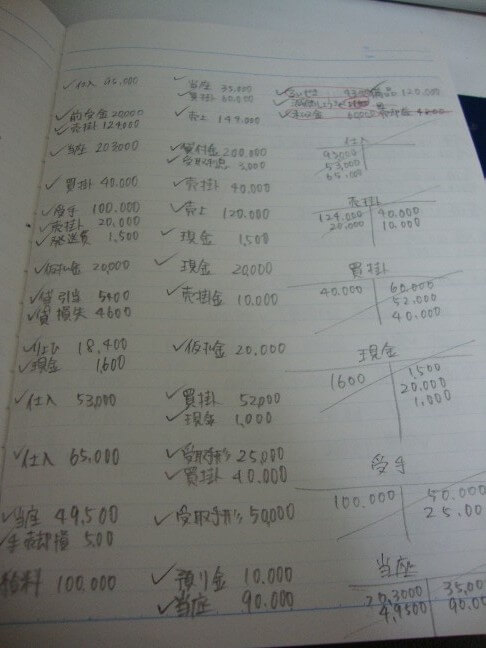 仕入 95,000 当座 35,000
買掛 60,000
備品 120,000
前受金 20,000
売掛 129,000 売上 149,000
当座 203000 貸付金 200,000
受取利息 3,000
買掛 40,000 売掛 40,000
受手 100,000 売上 120,000
売掛 20,000
発送費 1,500 現金 1,500
仮払金 20,000 現金 20,000
貸引当 5400 売掛金 10,000
貸損失 4600
18,400 仮払金 20,000
現金 1,600
仕入 53,000 買掛 52,000
現金 1,000
仕入 65,000 受取手形 25,000
買掛 40,000
当座 49,500 受取手形 50,000
手売却損 5,00
給料 100,000 預り金 10,000
当座 90,000
仕入
93,000
53,000
65,000
売掛
129,000 40,000
20,000 10,000
買掛
40,000 60,000
52,000
40,000
現金
1600 1,500
20,000
1,000
受手
100,000 50,000
25,00
当座
20,3000 35,00
4,9500 90,00